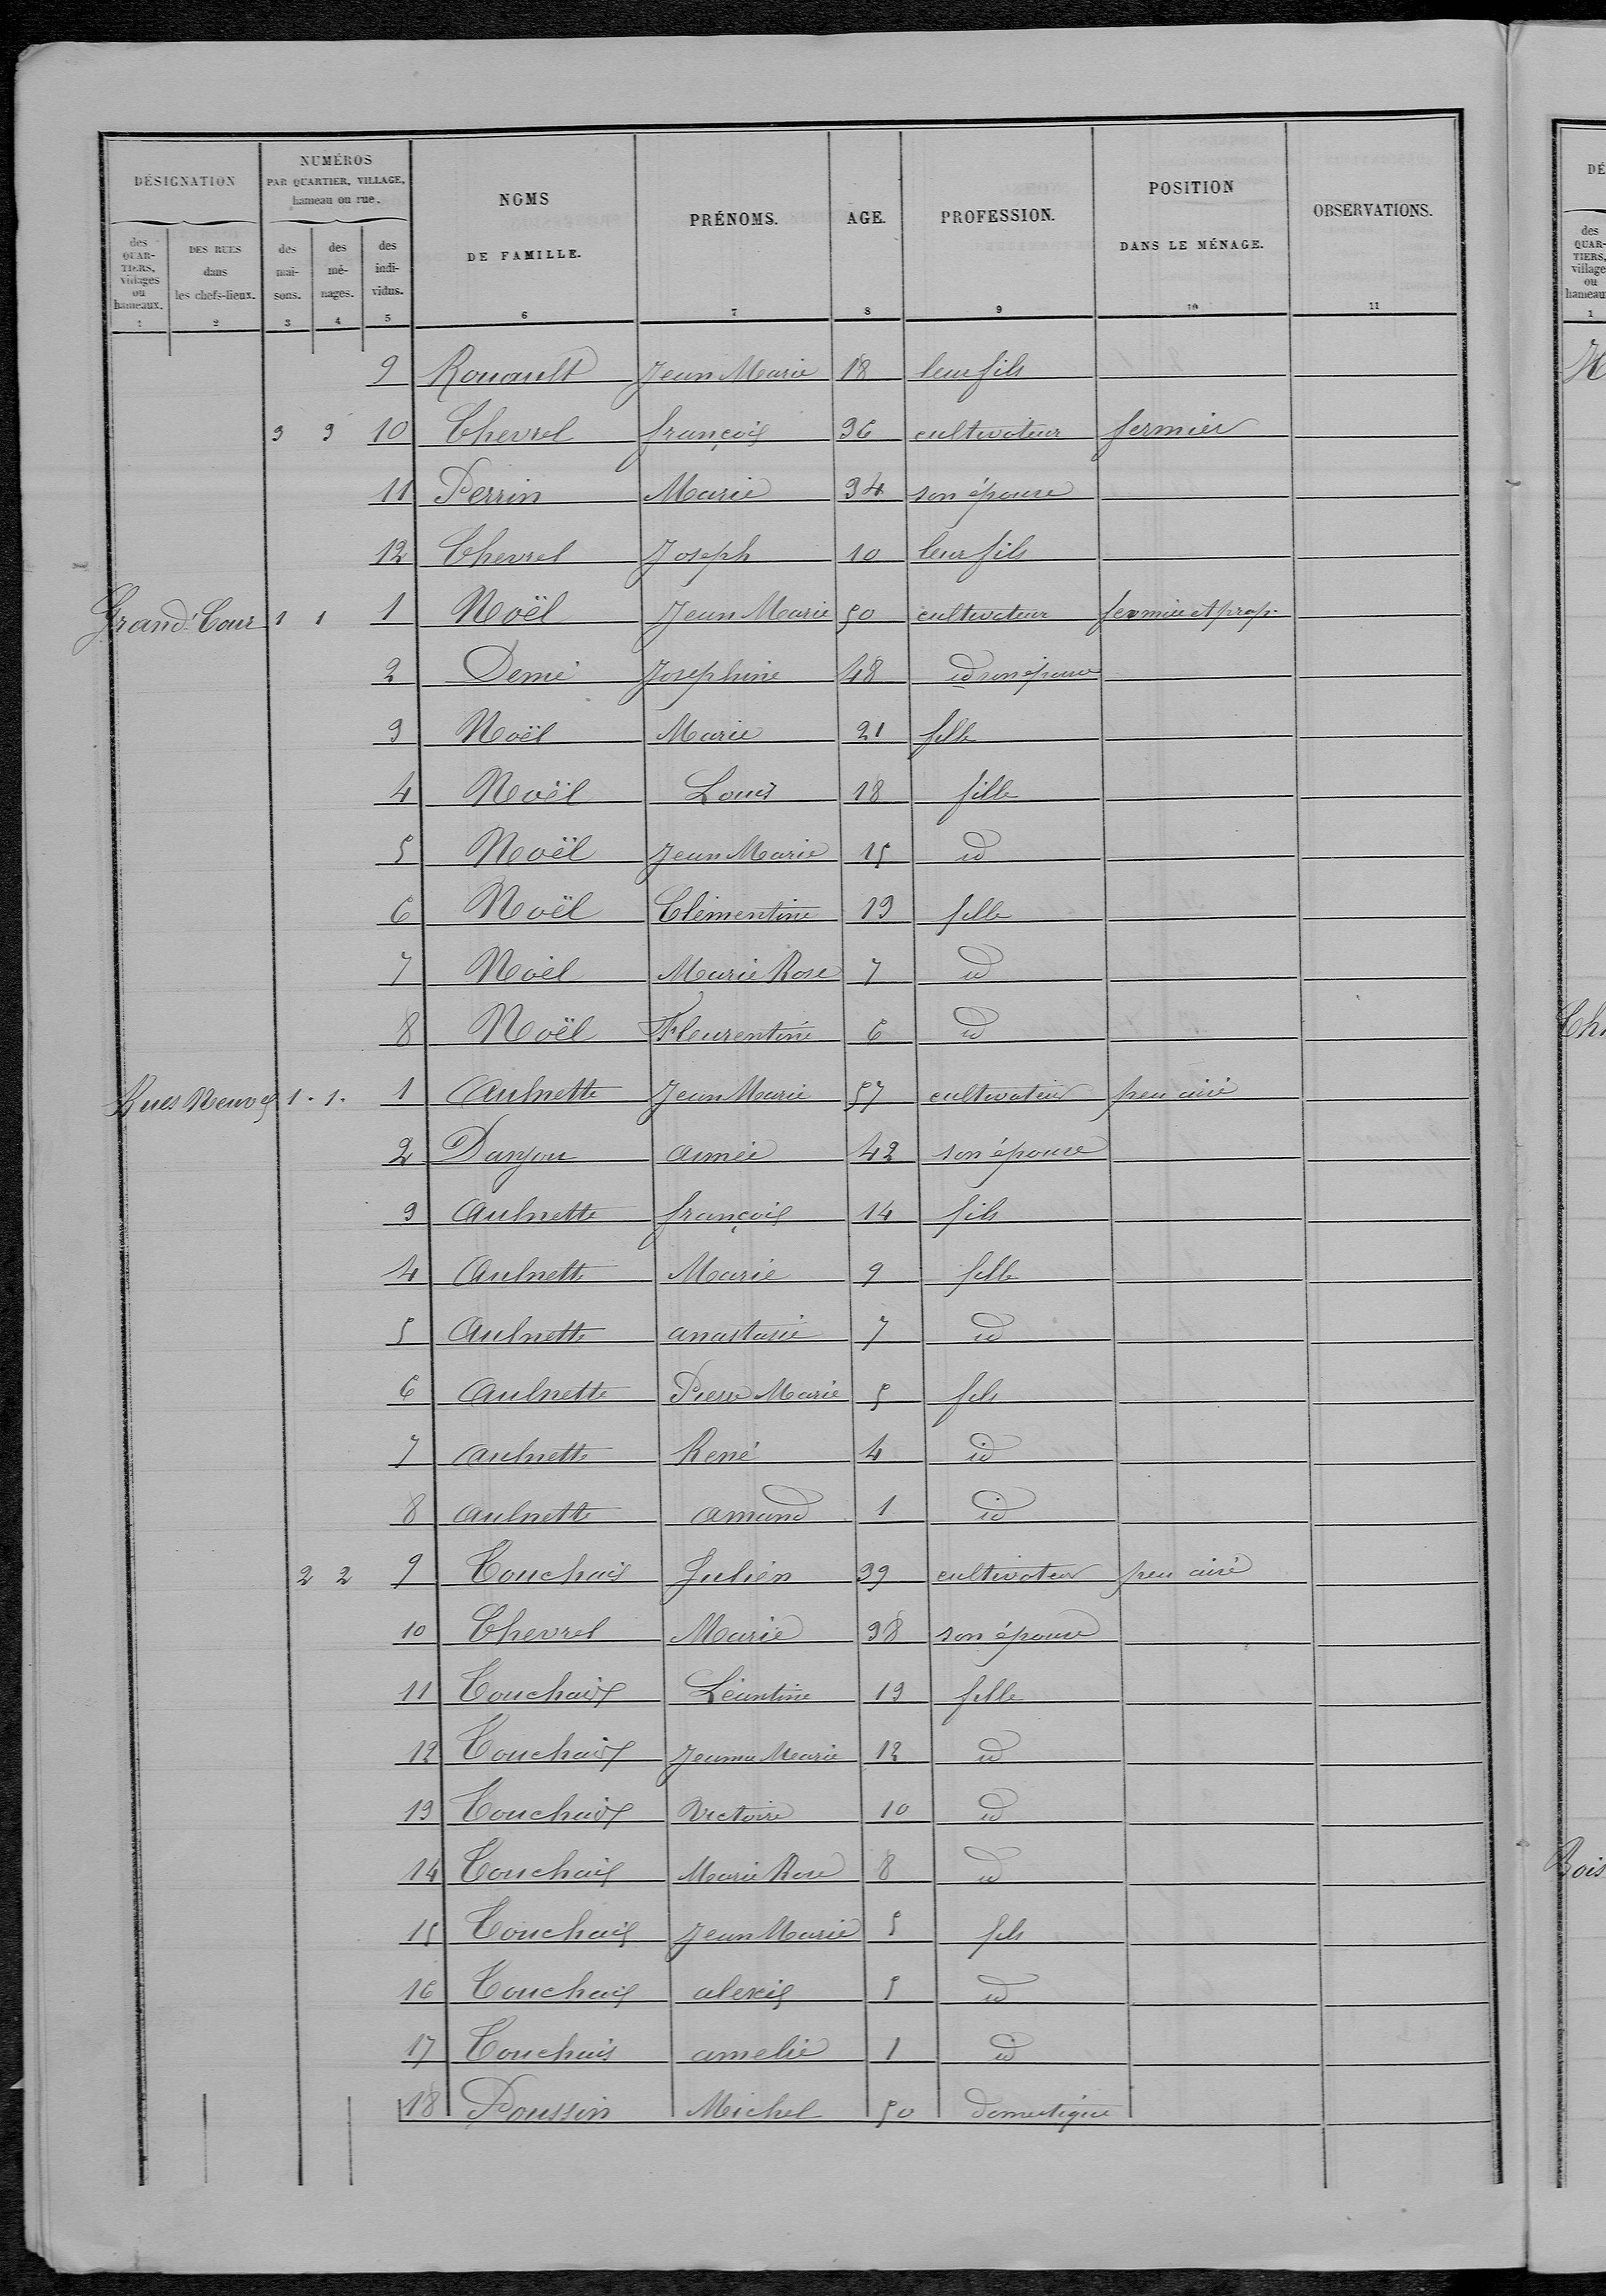 DÉSIGNATION
NUMÉROS
PAR QUARTIER, VILLAGE,
hameau ou rue.
NOMS
DE FAMILLE.
PRÉNOMS.
AGE.
PROFESSION.
POSITION
DANS LE MÉNAGE.
OBSERVATIONS.
des
QUAR-
TIERS,
villages
ou
hameaux.
DES RUES
dans
les chefs-lieux.
des
mai-
sons.
des
mé-
nages.
des
indi-
vidus.
1 2 3 4 5 6 7 8 9 10 11
9 Rouault Jean Marie 18 leur fils
3 3 10 Chevrel françois 36 cultivateur fermier
11 Perrin Marie 34 son épouse
12 Chevrel Joseph 10 leur fils
Grand'Cour 1 1 1 Noël Jean Marie 50 cultivateur fermier et prop.
2 Demé Josephine 48 id son épouse
3 Noël Marie 21 fille
4 Noël Louis 18 fille
5 Noël Jean Marie 15 id
6 Noël Clémentine 13 fille
7 Noël Marie Rose 7 id
8 Noël Fleurentine 6 id
Rues Neuves 1. 1. 1 Aulnette Jean Marie 57 cultivateur peu aisé
2 Danjou aimée 42 son épouse
3 Aulnette françois 14 fils
4 Aulnette Marie 9 fille
5 Aulnette anastasie 7 id
6 Aulnette Pierre Marie 5 fils
7 aulnette René 4 id
8 aulnette amand 1 id
2 2 9 Touchais Julien 39 cultivateur peu aisé
10 Chevrel Marie 38 son épouse
11 Touchais Léantine 13 fille
12 Touchais Jeanne Marie 12 id
13 Touchais Victoire 10 id
14 Touchais Marie Rose 8 id
15 Touchais Jean Marie 5 fils
16 Touchais alexis 5 id
17 Touchais amelie 1 id
18 Poussin Michel 50 domestique
DÉ
des
QUAR-
TIERS,
village
ou
hameau
1
Bois